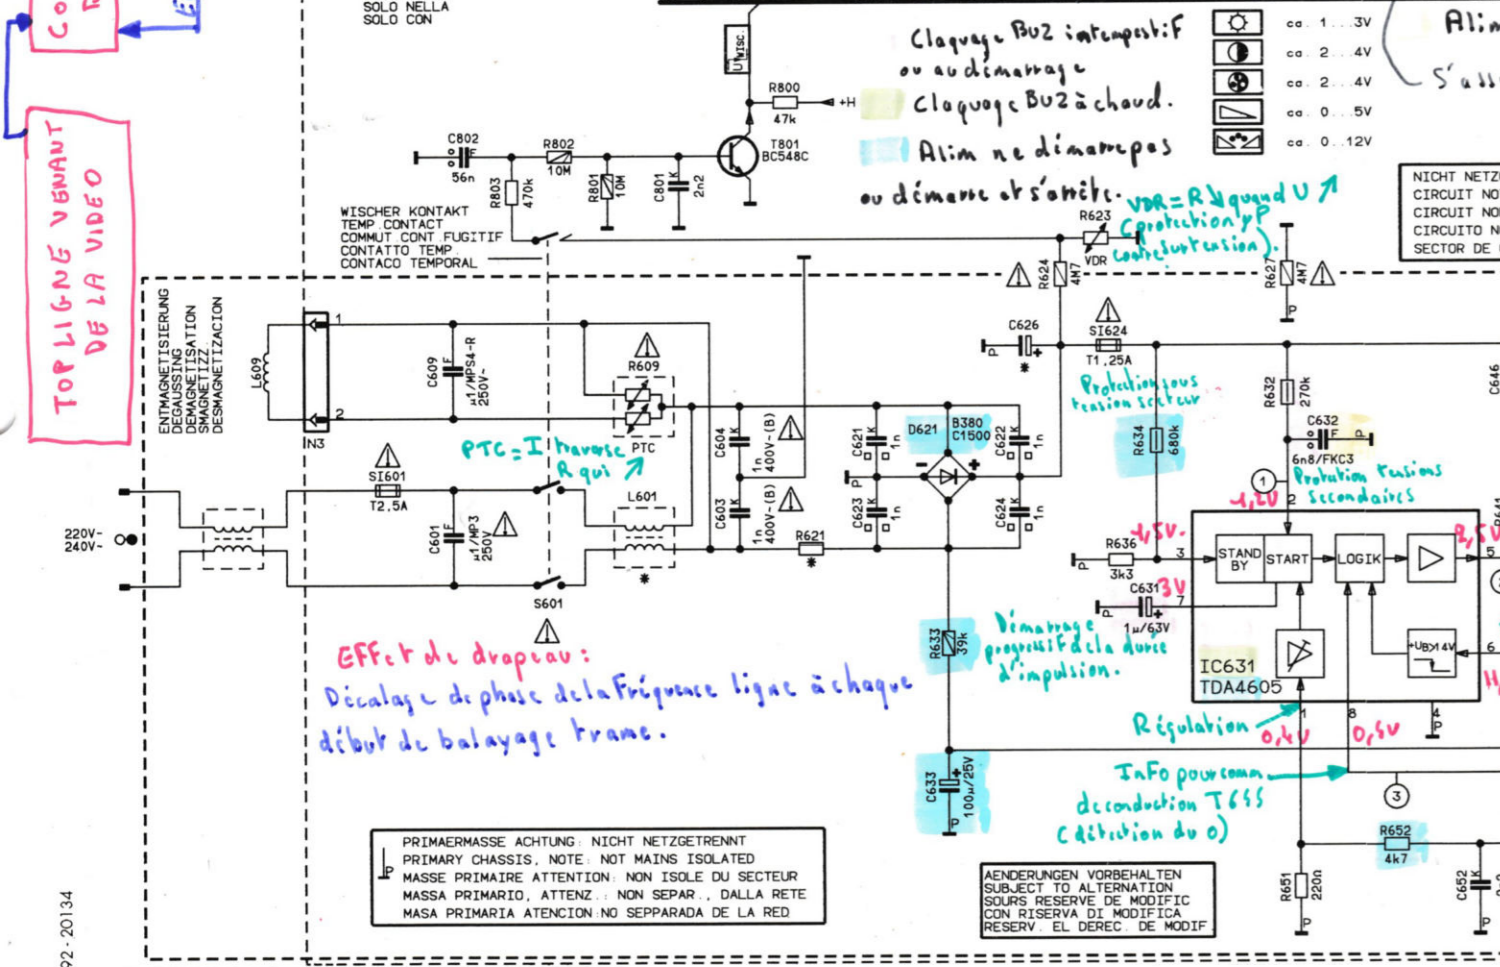 SOLO NELLA
SOLO CON
TOP LIGNE VENANT
DE LA VIDEO
UWISC.
R800
47k
+H
C802
56n
R802
10M
R803
470k
R801
10M
C801
2n2
T801
BC548C
WISCHER KONTAKT
TEMP.CONTACT
COMMUT CONT.FUGITIF
CONTATTO TEMP.
CONTACO TEMPORAL
Claquage BUZ intempestif
ou au démarrage
Claquage BUZ à chaud.
Alim ne démarre pas
ou démarre et s'arrête.
ca. 1...3V
ca. 2...4V
ca. 2...4V
ca. 0...5V
ca. 0..12V
Alim
S'ass
NICHT NETZ
CIRCUIT NO
CIRCUIT NO
CIRCUITO N
SECTOR DE
VDR = R ↓ quand U ↗
(protection
contre surtension).
R623
VDR
R624
4M7
R627
4M7
P
ENTMAGNETISIERUNG
DEGAUSSING
DEMAGNETISATION
SMAGNETIZZ.
DESMAGNETIZACION
L609
1
2
N3
C609
µ1/MPS4-R
250V~
R609
PTC
PTC = I traverse
R qui ↗
SI601
T2,5A
220V~
240V~
C601
µ1/MP3
250V
S601
L601
*
C604
1n
400V~(B)
C603
1n
400V~(B)
R621
*
C621
1n
C623
1n
P
D621
B380
C1500
C622
1n
C624
1n
P
C626
*
SI624
T1,25A
Protection sous
tension secteur
R634
680k
R632
270k
C632
6n8/FKC3
P
Protection tensions
secondaires
C646
1
1,2V
2
1,5V.
R636
3k3
P
3
C631
1µ/63V
P
3V
7
STAND
BY
START
LOGIK
2,5V
5
+UB>14V
6
IC631
TDA4605
1
8
4
P
0,4V
Régulation
Info pour comm
de conduction T655
(détection du 0)
3
R633
39k
Démarrage
progressif de la durée
d'impulsion.
C633
100µ/25V
P
Effet de drapeau:
Décalage de phase de la Fréquence ligne à chaque
début de balayage trame.
PRIMAERMASSE ACHTUNG: NICHT NETZGETRENNT
PRIMARY CHASSIS, NOTE: NOT MAINS ISOLATED
P MASSE PRIMAIRE ATTENTION: NON ISOLE DU SECTEUR
MASSA PRIMARIO, ATTENZ.: NON SEPAR., DALLA RETE
MASA PRIMARIA ATENCION:NO SEPPARADA DE LA RED
AENDERUNGEN VORBEHALTEN
SUBJECT TO ALTERNATION
SOURS RESERVE DE MODIFIC
CON RISERVA DI MODIFICA
RESERV. EL DEREC. DE MODIF
R651
220n
P
R652
4k7
C652
P
92-20134